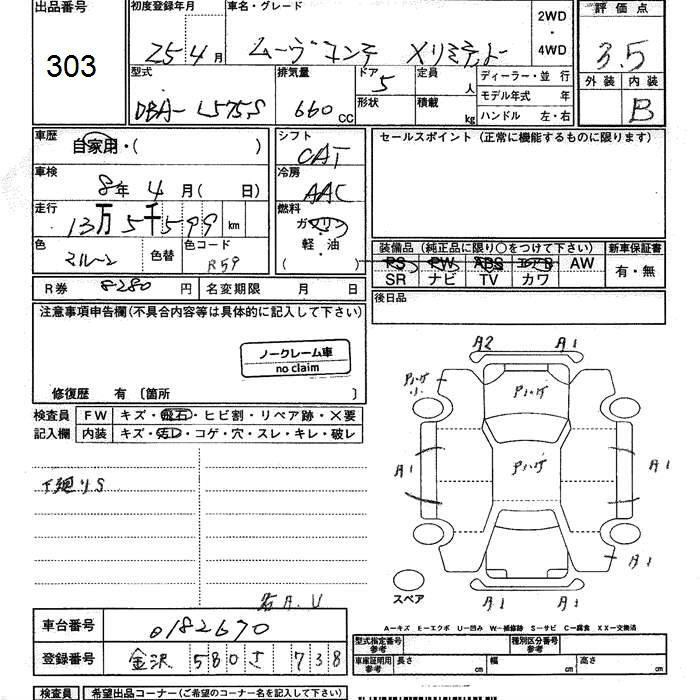 出品番号 初度登録年月 車名・グレード 2WD・4WD 評価点
303 25年4月 ムーヴコンテ Xリミテッド 3.5
型式 排気量 ドア 定員 人 ディーラー・並行 外装 内装
DBA-L575S 660CC 5 形状 積載 kg モデル年式 年 B
ハンドル 左・右
車歴 自家用・( ) シフト CAT セールスポイント(正常に機能するものに限ります)
車検 8年4月( 日) 冷房 AAC
走行 13万5千599km 燃料 ガソリン・軽・油 ( )
色 マルーン 色替 色コード R59 装備品(純正品に限り○をつけて下さい) 新車保証書
PS PW ABS エアB AW 有・無
SR ナビ TV カワ
R券 8280円 名変期限 月 日 後日品
注意事項申告欄(不具合内容等は具体的に記入して下さい)
ノークレーム車
no claim
修復歴 有〔箇所 〕
検査員 FW キズ・飛石・ヒビ割・リペア跡・×要
記入欄 内装 キズ・汚レ・コゲ・穴・スレ・キレ・破レ
A2 A1
アハゲ アハゲ
アハゲ
A1 A1
A1
A1 A1
スペア
下廻りS
A-キズ E-エクボ U-凹み W-補修跡 S-サビ C-腐食 XX-交換済
車台番号 0182670
登録番号 金沢 580 さ 738
型式指定番号 参考 種別区分番号 参考
車庫証明用 参考 長さ cm 幅 cm 高さ cm
検査員 希望出品コーナー(ご希望のコーナー名を記入して下さい)